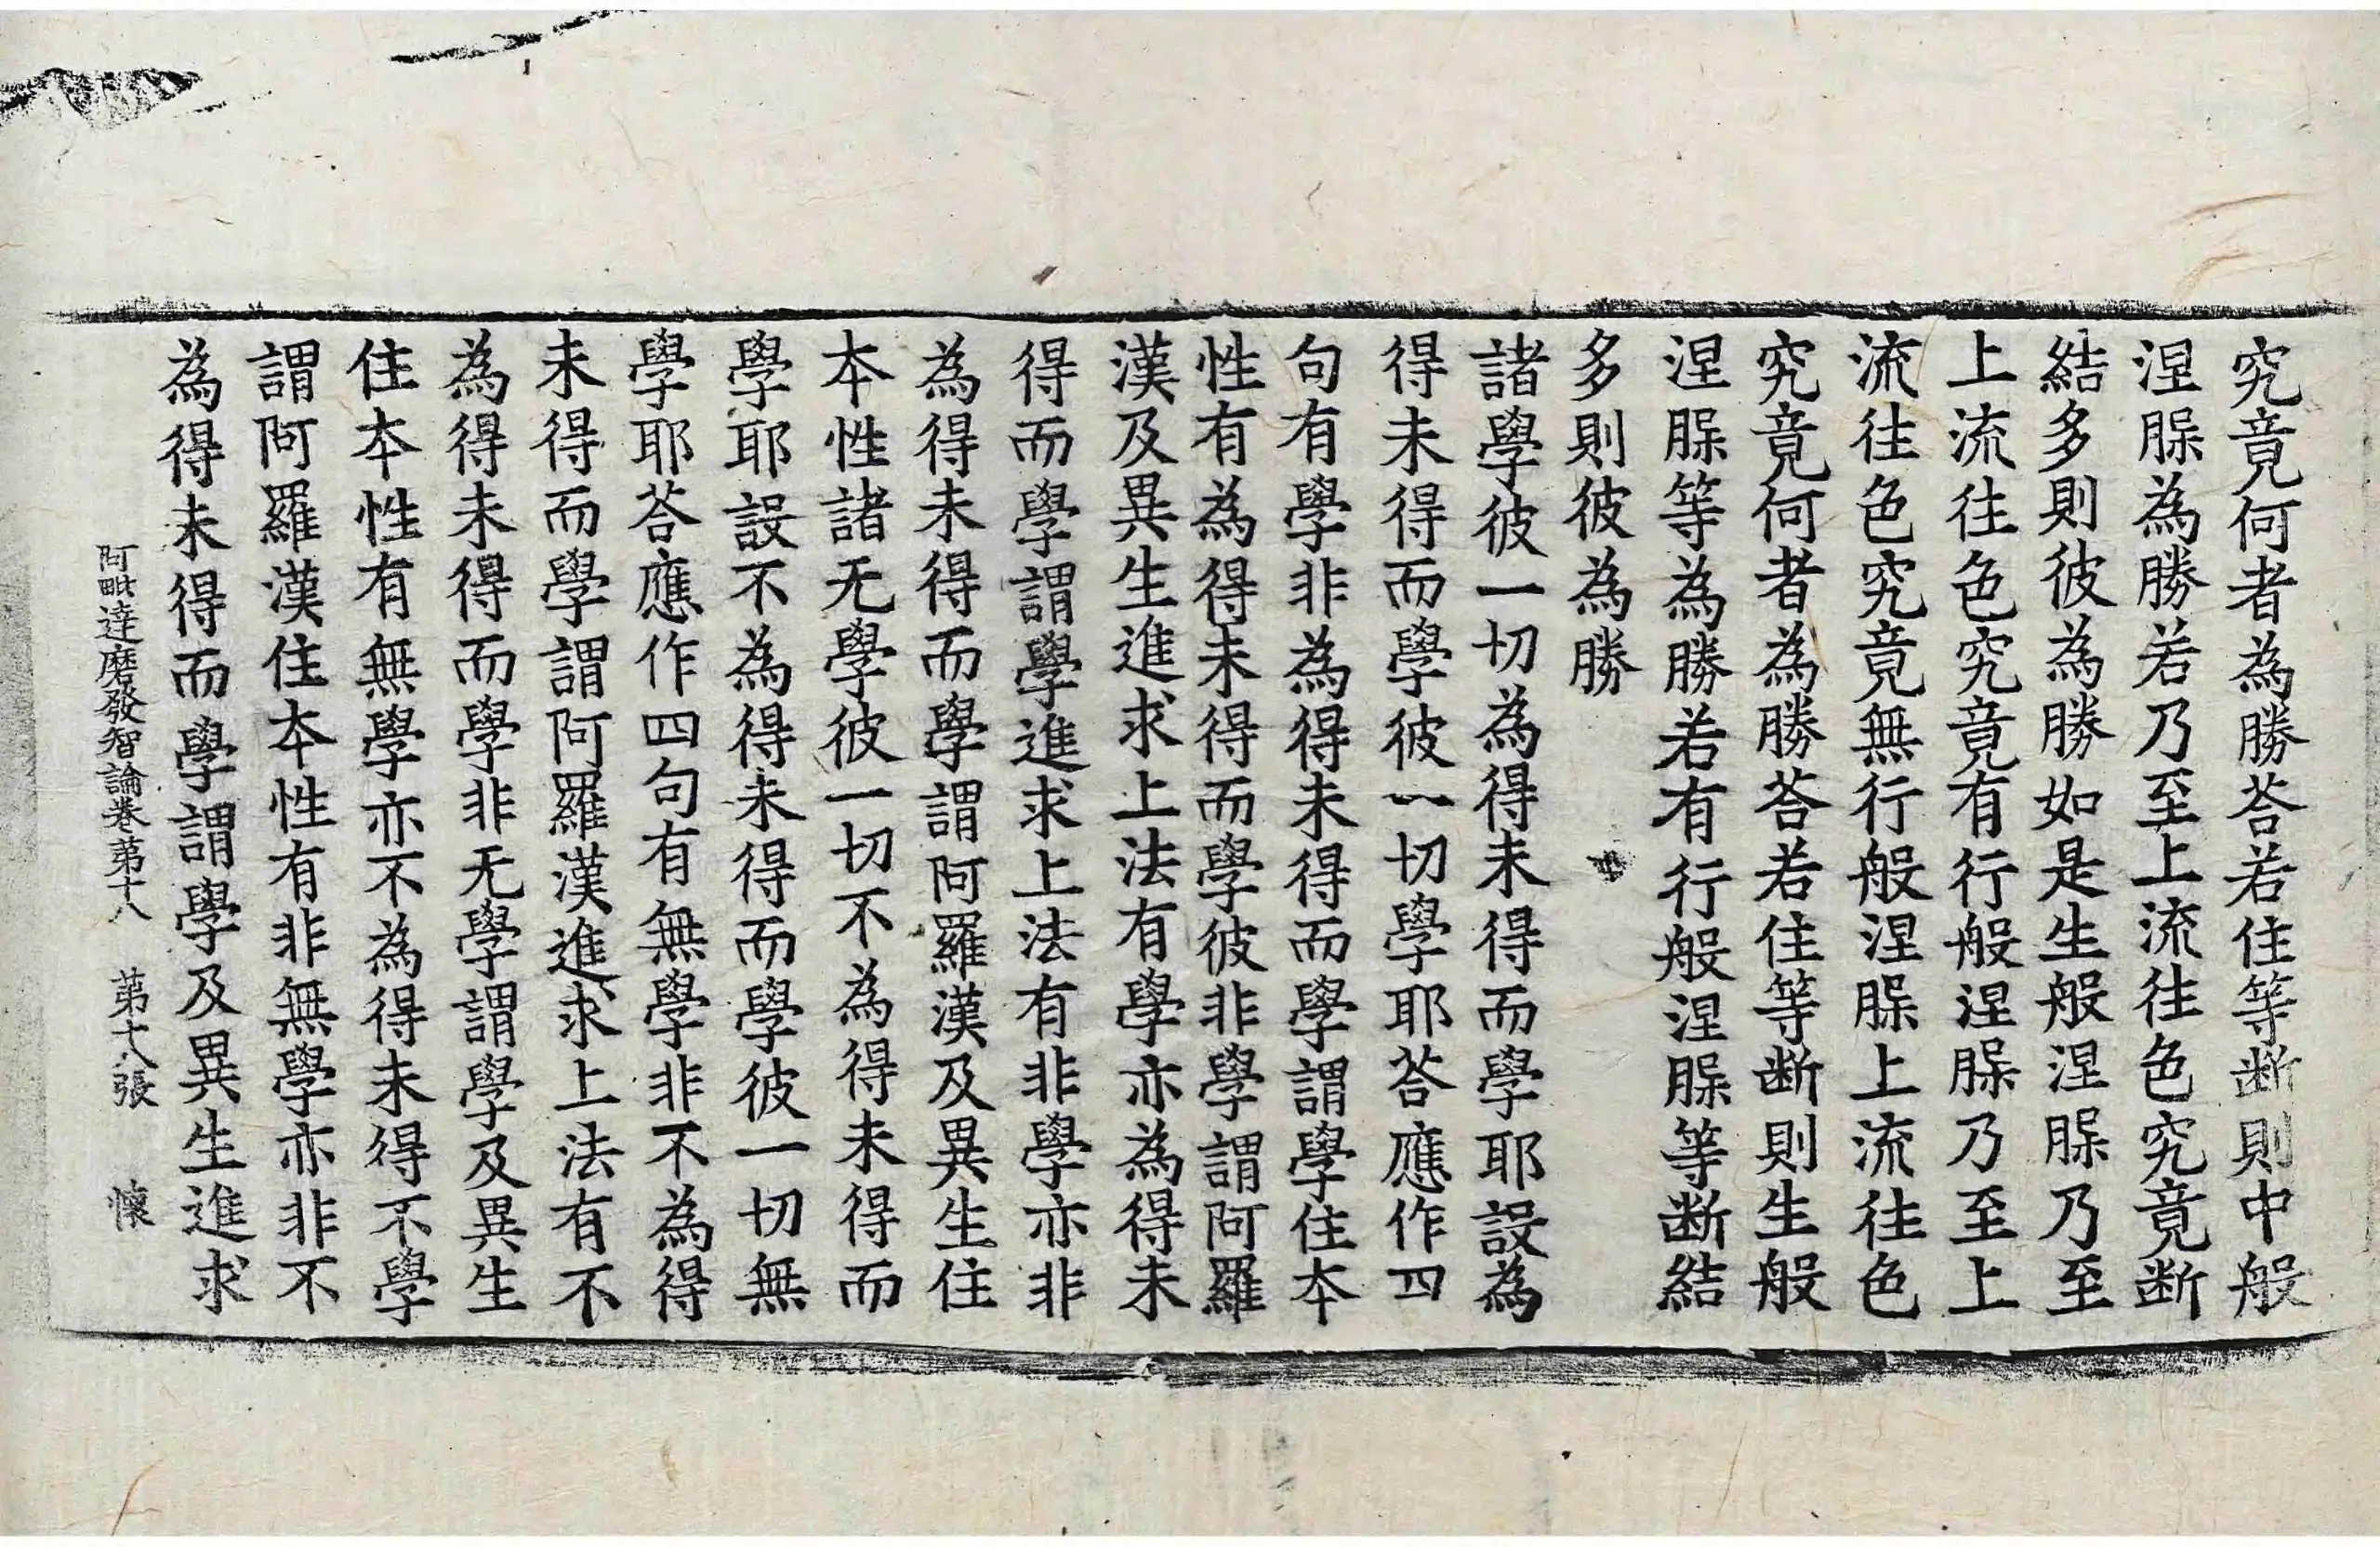 究竟何者為勝荅若住等断則中般
涅䏶為勝若乃至上流往色究竟断
結多則彼為勝如是生般涅䏶乃至
上流往色究竟有行般涅䏶乃至上
流往色究竟無行般涅䏶上流往色
究竟何者為勝荅若住等断則生般
涅䏶等為勝若有行般涅䏶等断結
多則彼為勝
諸學彼一切為得未得而學耶設為
得未得而學彼一切學耶荅應作四
句有學非為得未得而學謂學住本
性有為得未得而學彼非學謂阿羅
漢及異生進求上法有學亦為得未
得而學謂學進求上法有非學亦非
為得未得而學謂阿羅漢及異生住
本性諸无學彼一切不為得未得而
學耶設不為得未得而學彼一切無
學耶荅應作四句有無學非不為得
未得而學謂阿羅漢進求上法有不
為得未得而學非无學謂學及異生
住本性有無學亦不為得未得不學
謂阿羅漢住本性有非無學亦非不
為得未得而學謂學及異生進求
阿毗達磨發智論卷第十八 第十八張 懷